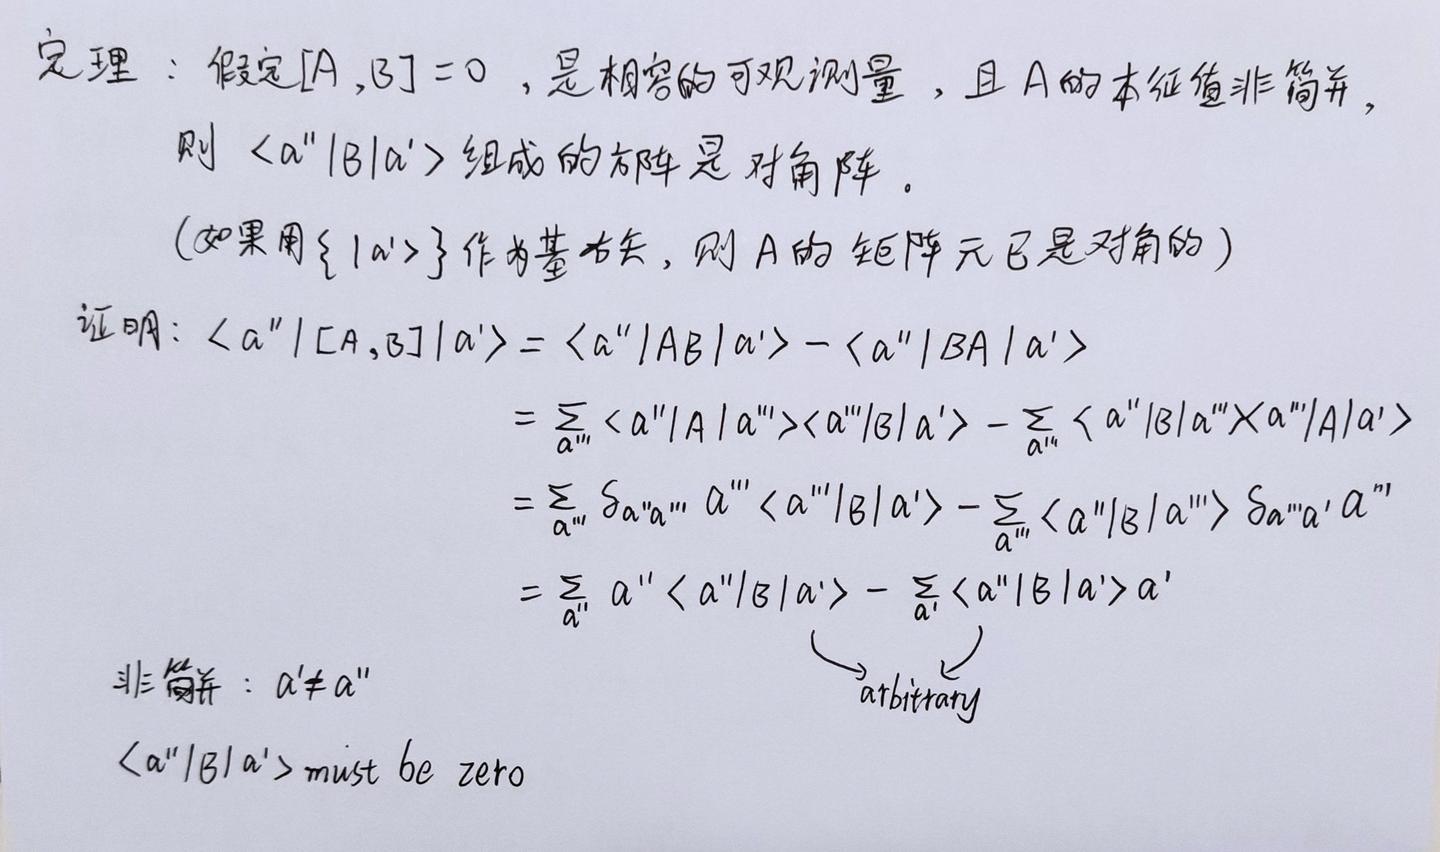 定理：假定[A,B]=0，是相容的可观测量，且A的本征值非简并，
则 <a''|B|a'> 组成的方阵是对角阵。
(如果用{|a'>}作为基右矢，则A的矩阵元已是对角的)
证明：<a''|[A,B]|a'> = <a''|AB|a'> - <a''|BA|a'>
= Σ_{a'''} <a''|A|a'''><a'''|B|a'> - Σ_{a'''} <a''|B|a'''><a'''|A|a'>
= Σ_{a'''} δ_{a''a'''} a''' <a'''|B|a'> - Σ_{a'''} <a''|B|a'''> δ_{a'''a'} a'''
= Σ_{a''} a'' <a''|B|a'> - Σ_{a'} <a''|B|a'> a'
arbitrary
非简并：a' ≠ a''
<a''|B|a'> must be zero